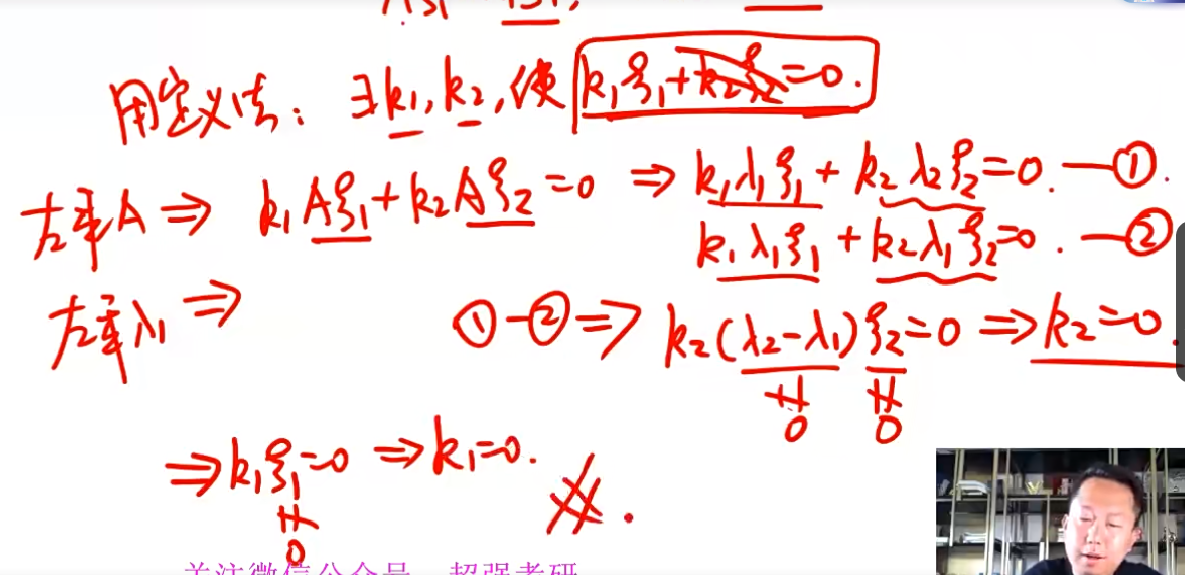 用定义法：∃k₁, k₂, 使 k₁ξ₁+k₂ξ₂=0.
左乘A ⇒ k₁Aξ₁+k₂Aξ₂=0 ⇒ k₁λ₁ξ₁+k₂λ₂ξ₂=0. —①.
k₁λ₁ξ₁+k₂λ₁ξ₂=0. —②
左乘λ₁ ⇒
①-② ⇒ k₂(λ₂-λ₁)ξ₂=0 ⇒ k₂=0.
≠ ≠
0 0
⇒ k₁ξ₁=0 ⇒ k₁=0.
≠
0
关注微信公众号 超强考研